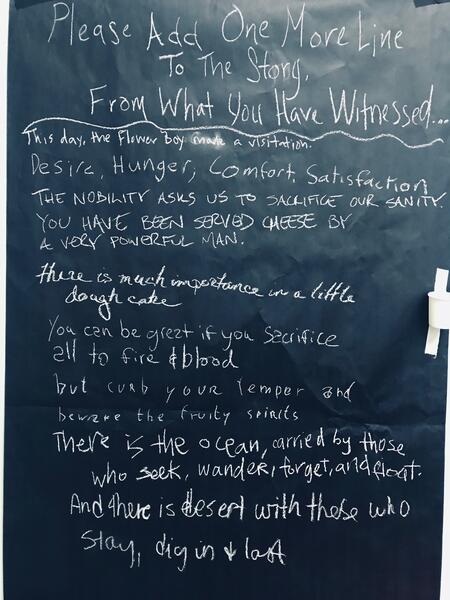 Please Add One More Line
To The Story,
From What You Have Witnessed...
This day, the Flower Boy made a visitation.
Desire, Hunger, Comfort, Satisfaction
THE NOBILITY ASKS US TO SACRIFICE OUR SANITY.
YOU HAVE BEEN SERVED CHEESE BY
A VERY POWERFUL MAN.
there is much importance in a little
dough cake
You can be great if you sacrifice
all to fire & blood
but curb your temper and
beware the fruity spirits
There is the ocean, carried by those
who seek, wander, forget, and float.
And there is desert with those who
stay, dig in & last